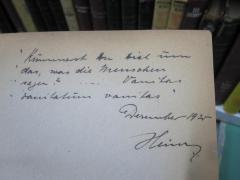 "Kümmert Du viel um
das, was die Menschen
sagen? ..... Vanitas
vanitatum vanitas"
Dezember 1925
Heinz